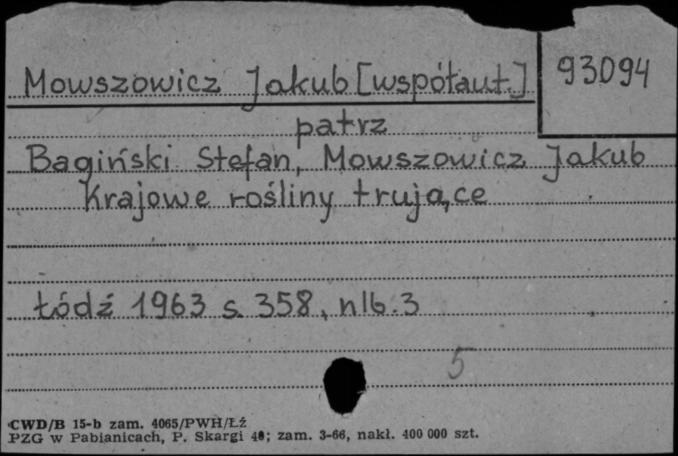 Mowszowicz Jakub [współaut.]
93094
patrz
Bagiński Stefan, Mowszowicz Jakub
Krajowe rośliny trujące
Łódź 1963 s. 358, nlb. 3
5
CWD/B 15-b zam. 4065/PWH/ŁŹ
PZG w Pabianicach, P. Skargi 40; zam. 3-66, nakł. 400 000 szt.